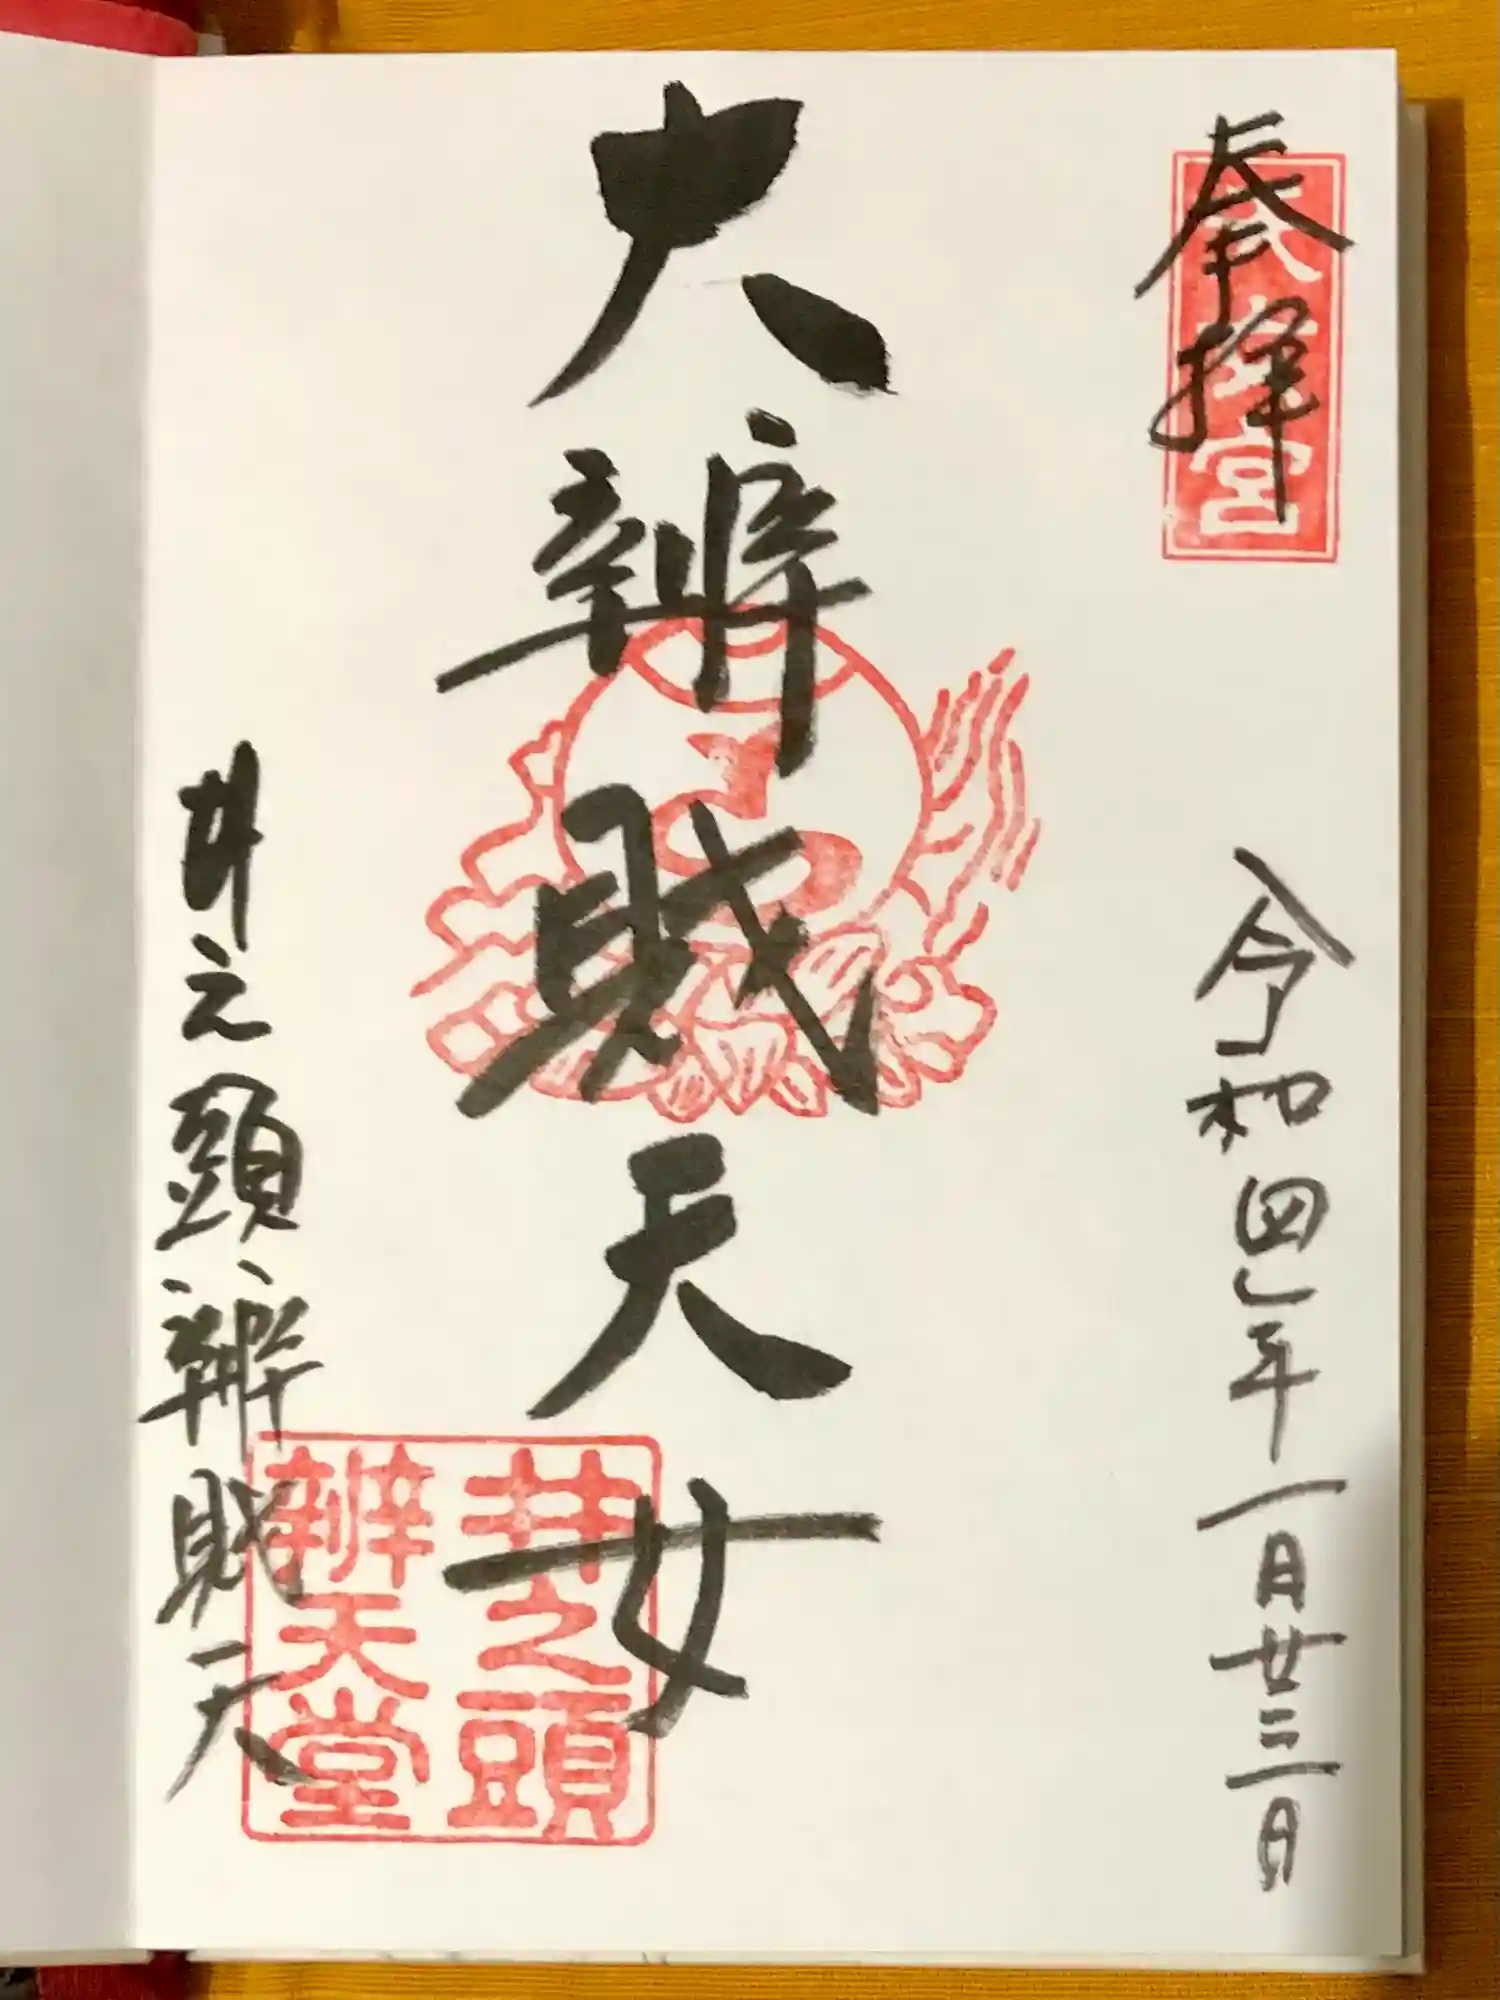 奉拝
宮
令和四年一月廿三日
大辨財天女
井之頭
辨天堂
井之頭辨財天